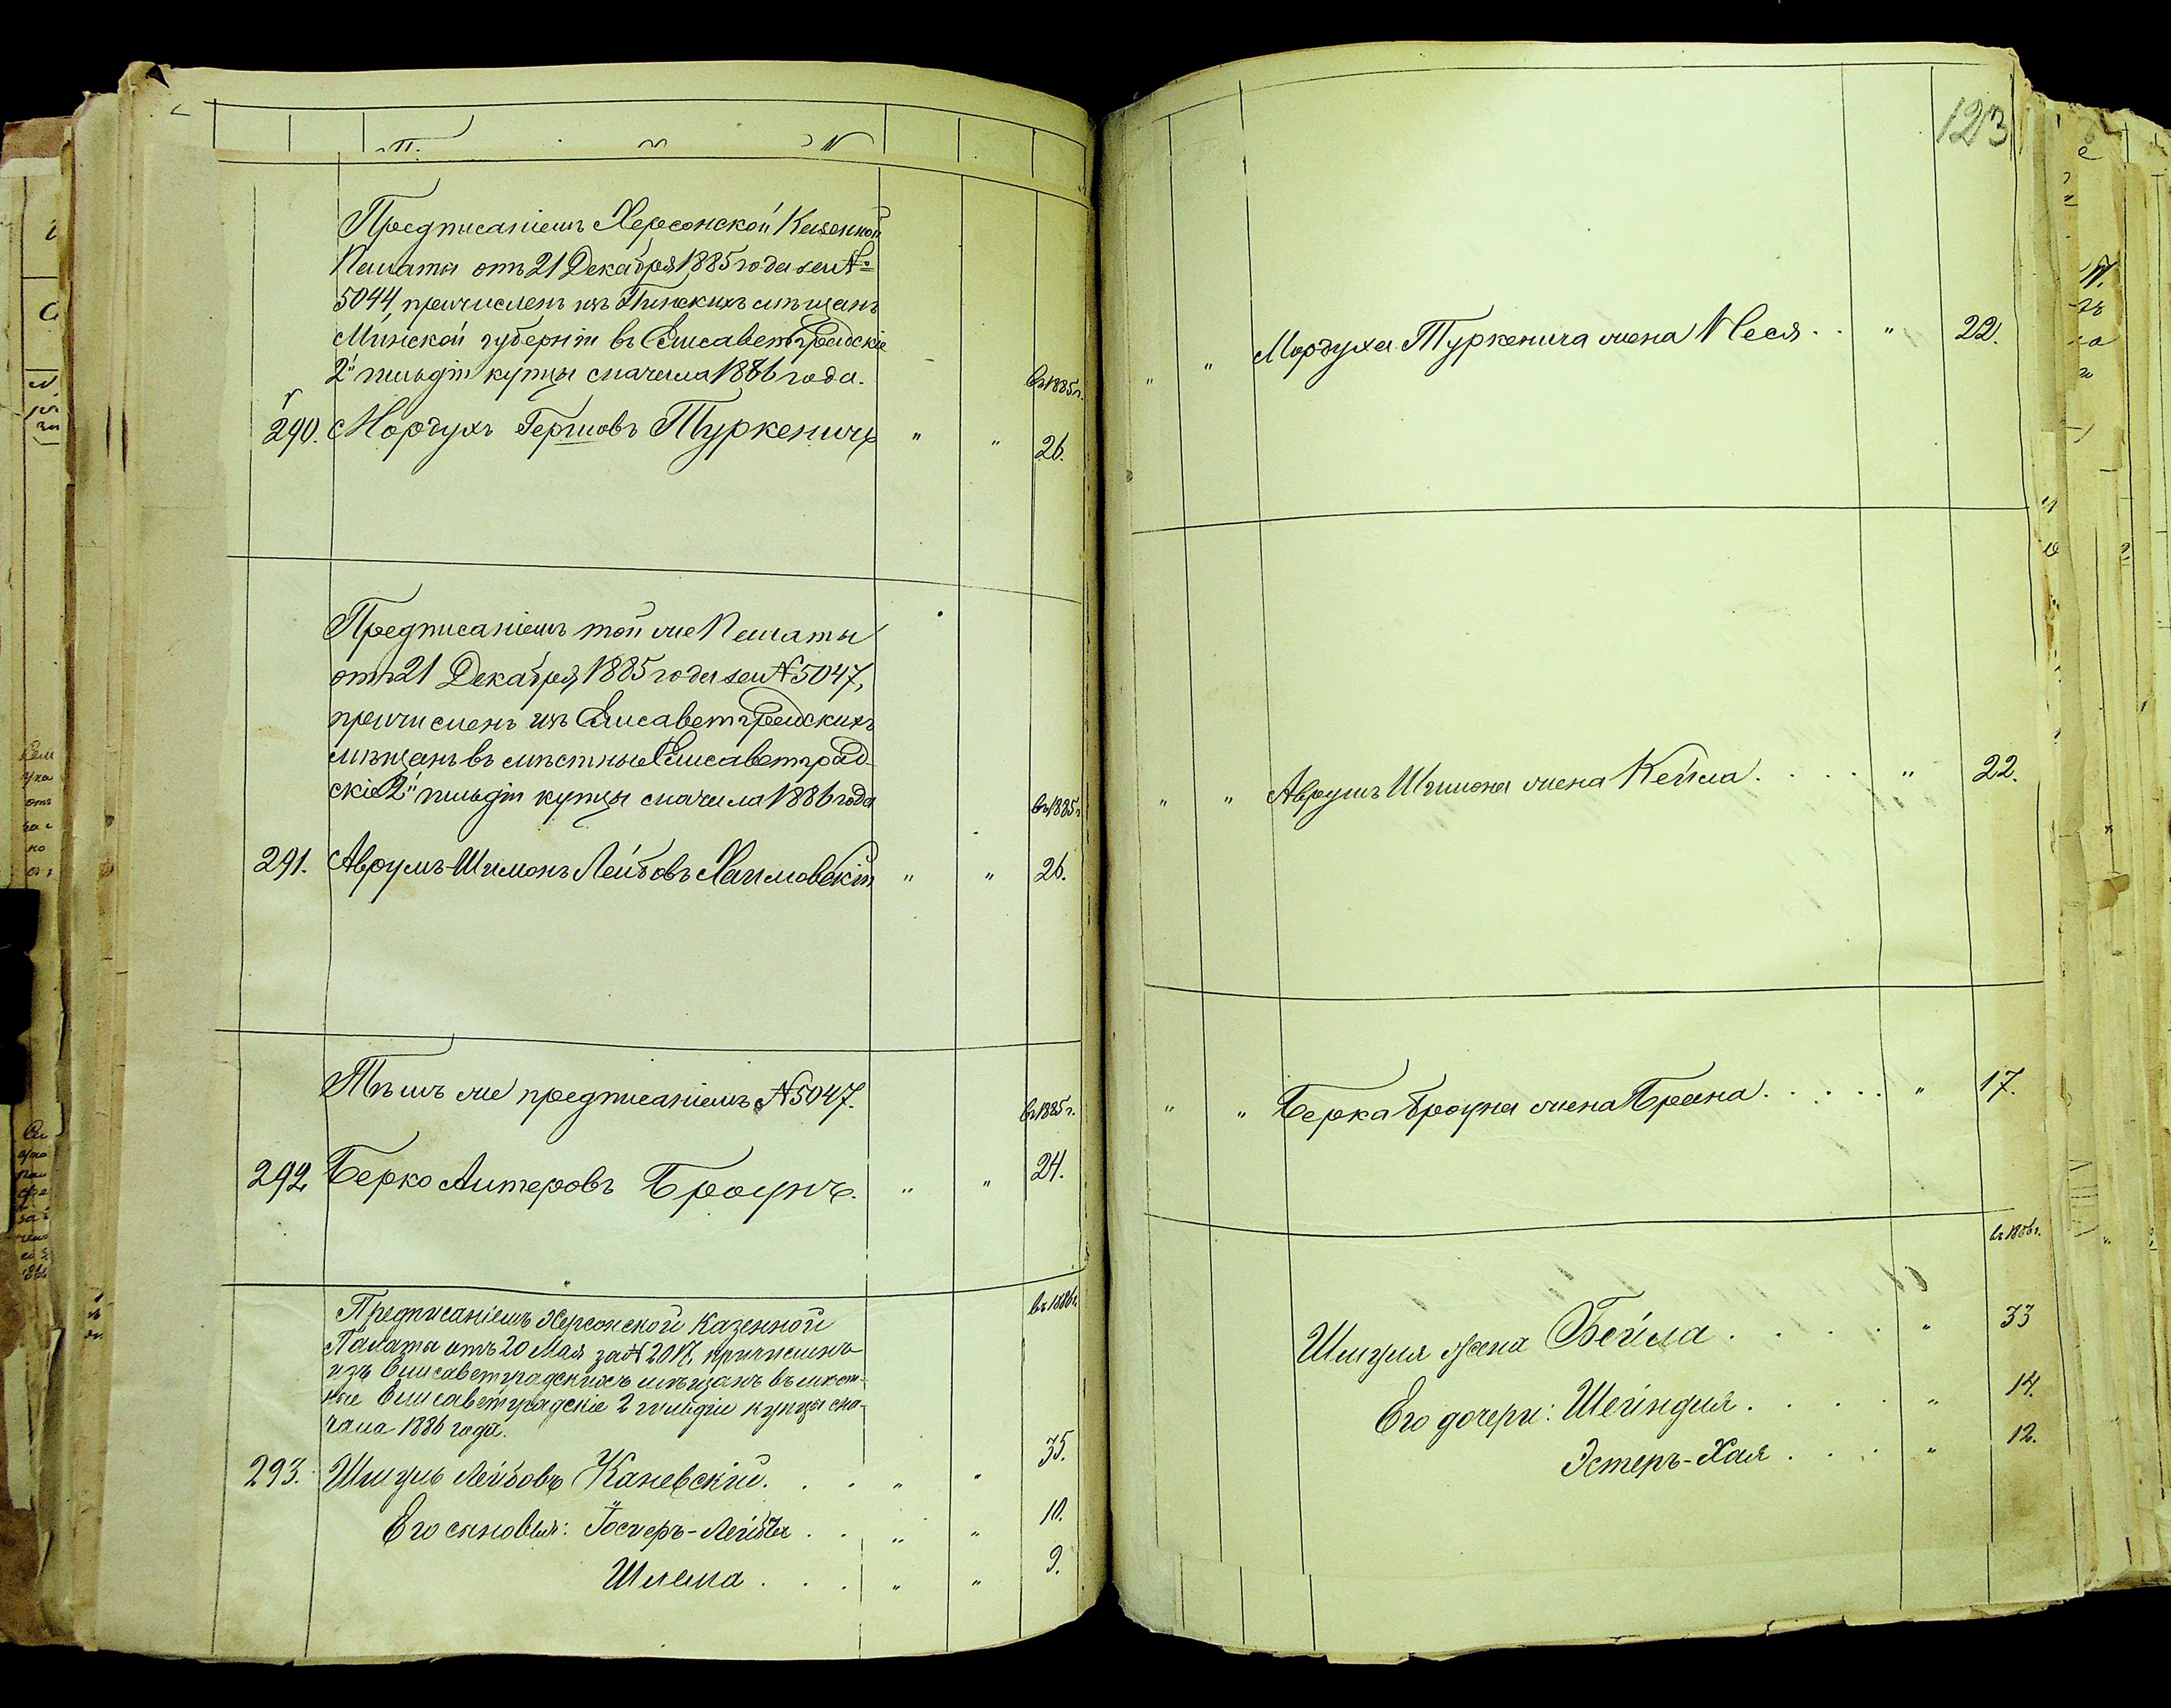 Предписаніемъ Херсонской Казенной
Палаты отъ 21 Декабря 1885 года за №
5044, причисленъ изъ Пинскихъ мѣщанъ
Минской губерніи въ Елисаветградскіе
2й гильдіи купцы сначала 1886 года.
въ 1885 г.
290. Мордухъ Гершовъ Туркеничъ " " 26.
Предписаніемъ той же Палаты
отъ 21 Декабря 1885 года за № 5047,
причисленъ изъ Елисаветградскихъ
мѣщанъ въ мѣстные Елисаветград-
скіе 2й гильдіи купцы сначала 1886 года
въ 1885 г.
291. Аврумъ-Шимонъ Лейбовъ Хаимовскій " " 26.
Тѣмъ же предписаніемъ № 5047.
въ 1885 г.
292. Берко Алтеровъ Броунъ. " " 24.
въ 1886 г.
Предписаніемъ Херсонской Казенной
Палаты отъ 20 Мая за № 2017, причисленъ
изъ Елисаветградскихъ мѣщанъ въ мѣст-
ные Елисаветградскіе 2 гильдіи купцы сна-
чала 1886 года.
293. Шмуль Лейбовъ Каневскій. . . " " 35.
Его сыновья: Лейба . . " " 10.
Шлема . . . " " 9.
123
" " Мордуха Туркенича жена Песя . . " 22.
" " Аврумъ Шимона жена Кейла. . . . . " 22.
" " Берка Броуна жена Брана. . . . . . " 17.
въ 1886 г.
Шмуля жена Бейла . . . . . " 33
Его дочери: Шейндля . . . . . " 14.
Эстеръ-Хая . . . . " 12.